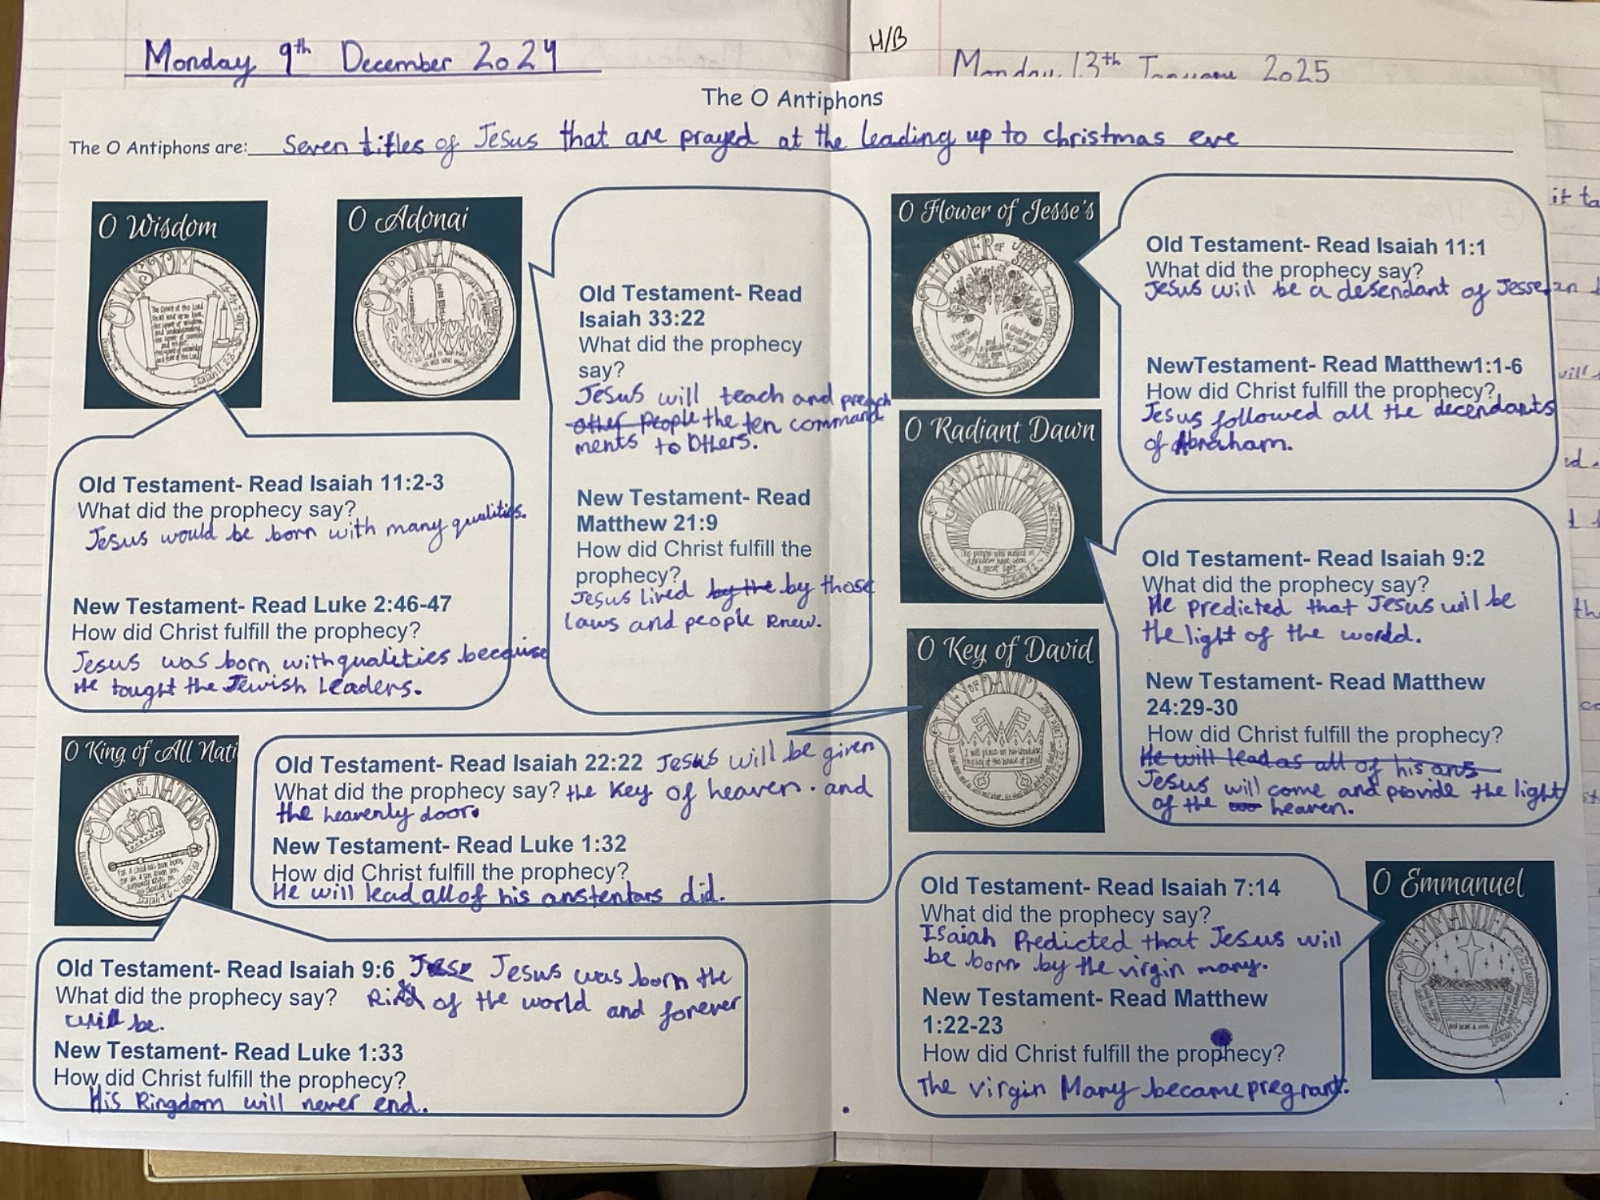 Monday 9th December 2024
H/B
Monday 13th January 2025
The O Antiphons
The O Antiphons are: Seven titles of Jesus that are prayed at the leading up to christmas eve
O Wisdom
O WISDOM
Isaiah 11:2-3
O Adonai
O ADONAI
Old Testament- Read Isaiah 11:2-3
What did the prophecy say?
Jesus would be born with many qualities.
New Testament- Read Luke 2:46-47
How did Christ fulfill the prophecy?
Jesus was born with qualities because
He tought the Jewish Leaders.
Old Testament- Read
Isaiah 33:22
What did the prophecy
say?
Jesus will teach and preach
other People the ten command
ments to Others.
New Testament- Read
Matthew 21:9
How did Christ fulfill the
prophecy?
Jesus lived by the by those
laws and people knew.
O Flower of Jesse's
Old Testament- Read Isaiah 11:1
What did the prophecy say?
Jesus will be a desendant of Jesse
NewTestament- Read Matthew1:1-6
How did Christ fulfill the prophecy?
Jesus followed all the decendants
of Abraham.
O Radiant Dawn
O RADIANT DAWN
Old Testament- Read Isaiah 9:2
What did the prophecy say?
He predicted that Jesus will be
the light of the world.
New Testament- Read Matthew
24:29-30
How did Christ fulfill the prophecy?
He will lead as all of his ans
Jesus will come and provide the light
of the heaven.
O Key of David
O KEY OF DAVID
Old Testament- Read Isaiah 22:22 Jesus will be given
What did the prophecy say? the key of heaven. and
the heavenly door.
New Testament- Read Luke 1:32
How did Christ fulfill the prophecy?
He will lead all of his anstentars did.
O King of All Nati
O KING OF ALL NATIONS
Old Testament- Read Isaiah 9:6 Jesus was born the
What did the prophecy say? of the world and forever
will be.
New Testament- Read Luke 1:33
How did Christ fulfill the prophecy?
His Kingdom will never end.
O Emmanuel
O EMMANUEL
Old Testament- Read Isaiah 7:14
What did the prophecy say?
Isaiah Predicted that Jesus will
be born by the virgin mary.
New Testament- Read Matthew
1:22-23
How did Christ fulfill the prophecy?
The virgin Mary became pregnant.